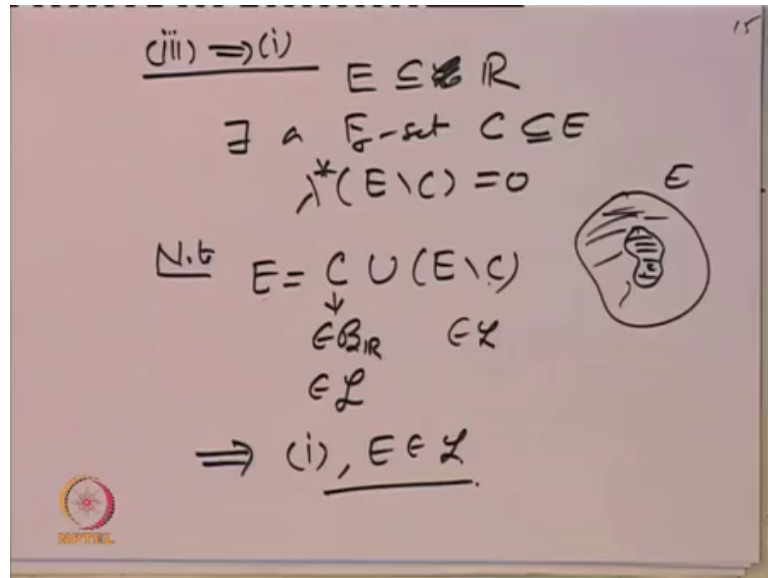 15
(iii) ⟹ (i)
E ⊆ ℝ
∃ a F_σ-set C ⊆ E
λ*(E \ C) = 0
E
Note E = C ∪ (E \ C)
↓
∈ B_ℝ ∈ ℒ
∈ ℒ
⟹ (i), E ∈ ℒ.
NPTEL